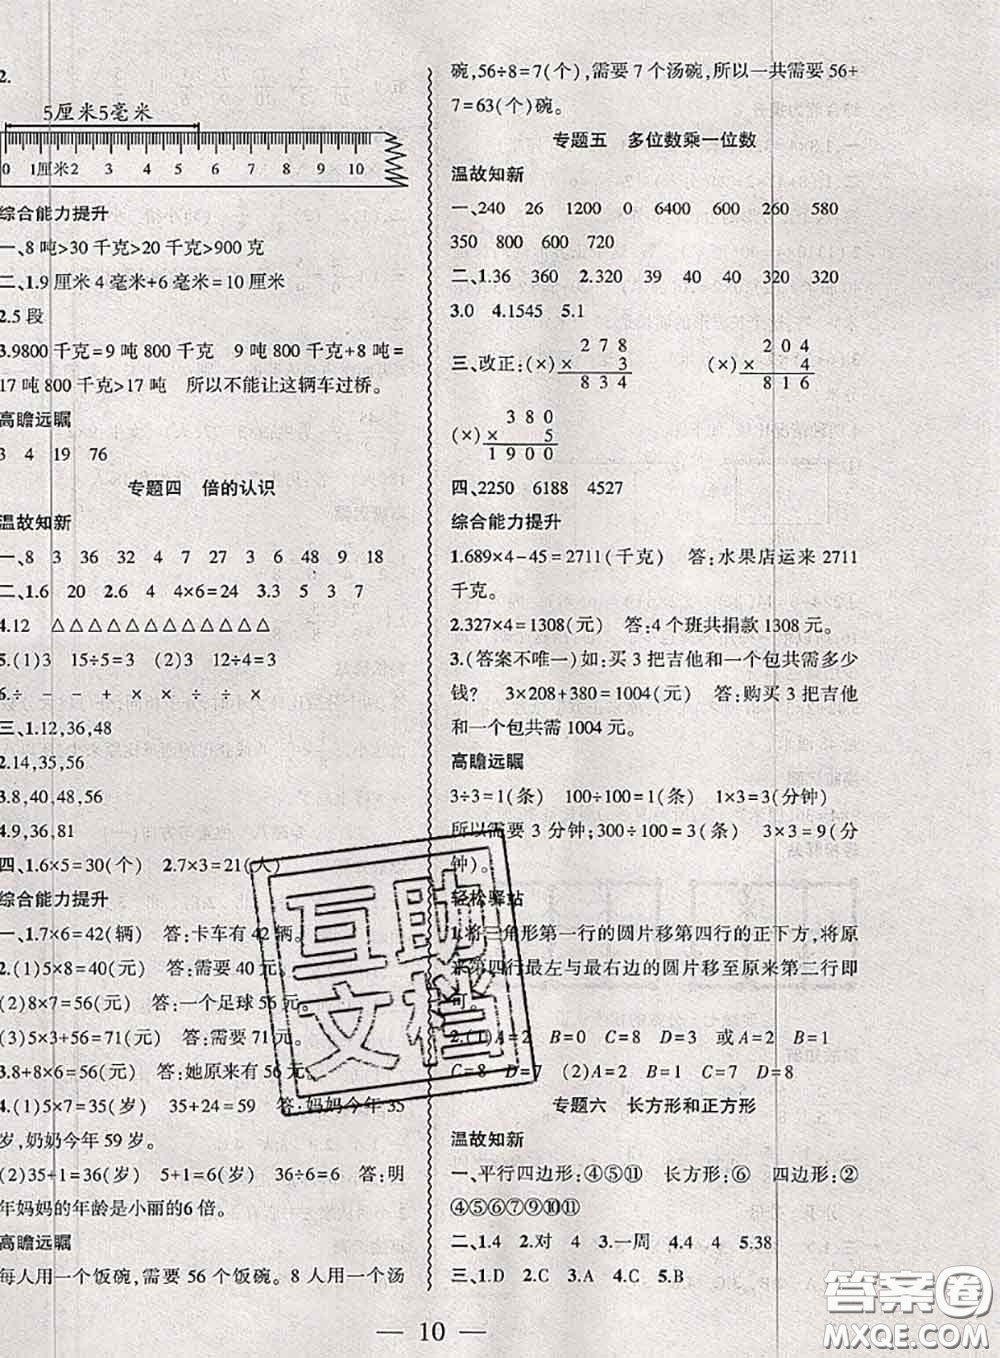 2.
5厘米5毫米
0 1厘米2 3 4 5 6 7 8 9 10
综合能力提升
一、8 吨>30 千克>20 千克>900 克
二、1.9 厘米 4 毫米+6 毫米=10 厘米
2.5 段
3.9800 千克=9 吨 800 千克 9 吨 800 千克+8 吨=
17 吨 800 千克>17 吨 所以不能让这辆车过桥。
高瞻远瞩
3 4 19 76
专题四 倍的认识
温故知新
一、8 3 36 32 4 7 27 3 6 48 9 18
二、1.6 20 2.6 4 4×6=24 3.3 5 3 7
4.12 △△△△△△△△△△△△
5.(1)3 15÷5=3 (2)3 12÷4=3
6.÷ − − + × × ÷ ÷ ×
三、1.12,36,48
2.14,35,56
3.8,40,48,56
4.9,36,81
四、1.6×5=30(个) 2.7×3=21(人)
综合能力提升
一、1.7×6=42(辆) 答:卡车有 42 辆。
2.(1)5×8=40(元) 答:需要 40 元。
(2)8×7=56(元) 答:一个足球 56 元。
(3)5×3+56=71(元) 答:需要 71 元。
3.8+8×6=56(元) 答:她原来有 56 元。
4.(1)5×7=35(岁) 35+24=59(岁) 答:妈妈今年 35
岁,奶奶今年 59 岁。
(2)35+1=36(岁) 5+1=6(岁) 36÷6=6 答:明
年妈妈的年龄是小丽的6 倍。
高瞻远瞩
每人用一个饭碗,需要 56 个饭碗。8 人用一个汤
碗,56÷8=7(个),需要 7 个汤碗,所以一共需要 56+
7=63(个)碗。
专题五 多位数乘一位数
温故知新
一、240 26 1200 0 6400 600 260 580
350 800 600 720
二、1.36 360 2.320 39 40 40 320 320
3.0 4.1545 5.1
三、改正:(×) 278 × 3 834 (×) 204 × 4 816
(×) 380 × 5 1900
四、2250 6188 4527
综合能力提升
1.689×4−45=2711(千克) 答:水果店运来 2711
千克。
2.327×4=1308(元) 答:4 个班共捐款 1308 元。
3.(答案不唯一)如:买 3 把吉他和一个包共需多少
钱? 3×208+380=1004(元) 答:购买 3 把吉他
和一个包共需 1004 元。
高瞻远瞩
3÷3=1(条) 100÷100=1(条) 1×3=3(分钟)
所以需要 3 分钟;300÷100=3(条) 3×3=9(分
钟)。
轻松驿站
1.将三角形第一行的圆片移第四行的正下方,将原
来第四行最左与最右边的圆片移至原来第二行即
可。
2.(1)A=2 B=0 C=8 D=3 或A=2 B=1
C=8 D=7 (2)A=2 B=1 C=7 D=8
专题六 长方形和正方形
温故知新
一、平行四边形:④⑤⑪ 长方形:⑥ 四边形:②
④⑤⑥⑦⑨⑩⑪
二、1.4 2.对 4 3.一周 4.4 4 5.38
三、1.D 2.C 3.A 4.C 5.B
互助
文档
答案圈
MXQE.COM
— 10 —